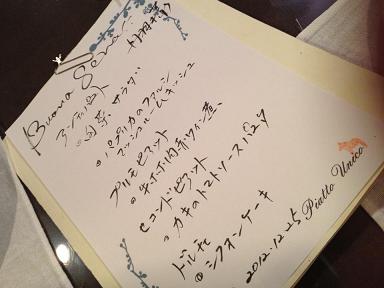 Buona Sera!
アンティパスト
• 白菜 サラダ
• パプリカのファルシ
マッシュルームキッシュ
プリモピアット
• 牛ホホ肉赤ワイン煮
セコンドピアット
• カキのトマトソースパスタ
ドルチェ
• シフォンケーキ
2012.12.25 Piatto Unico